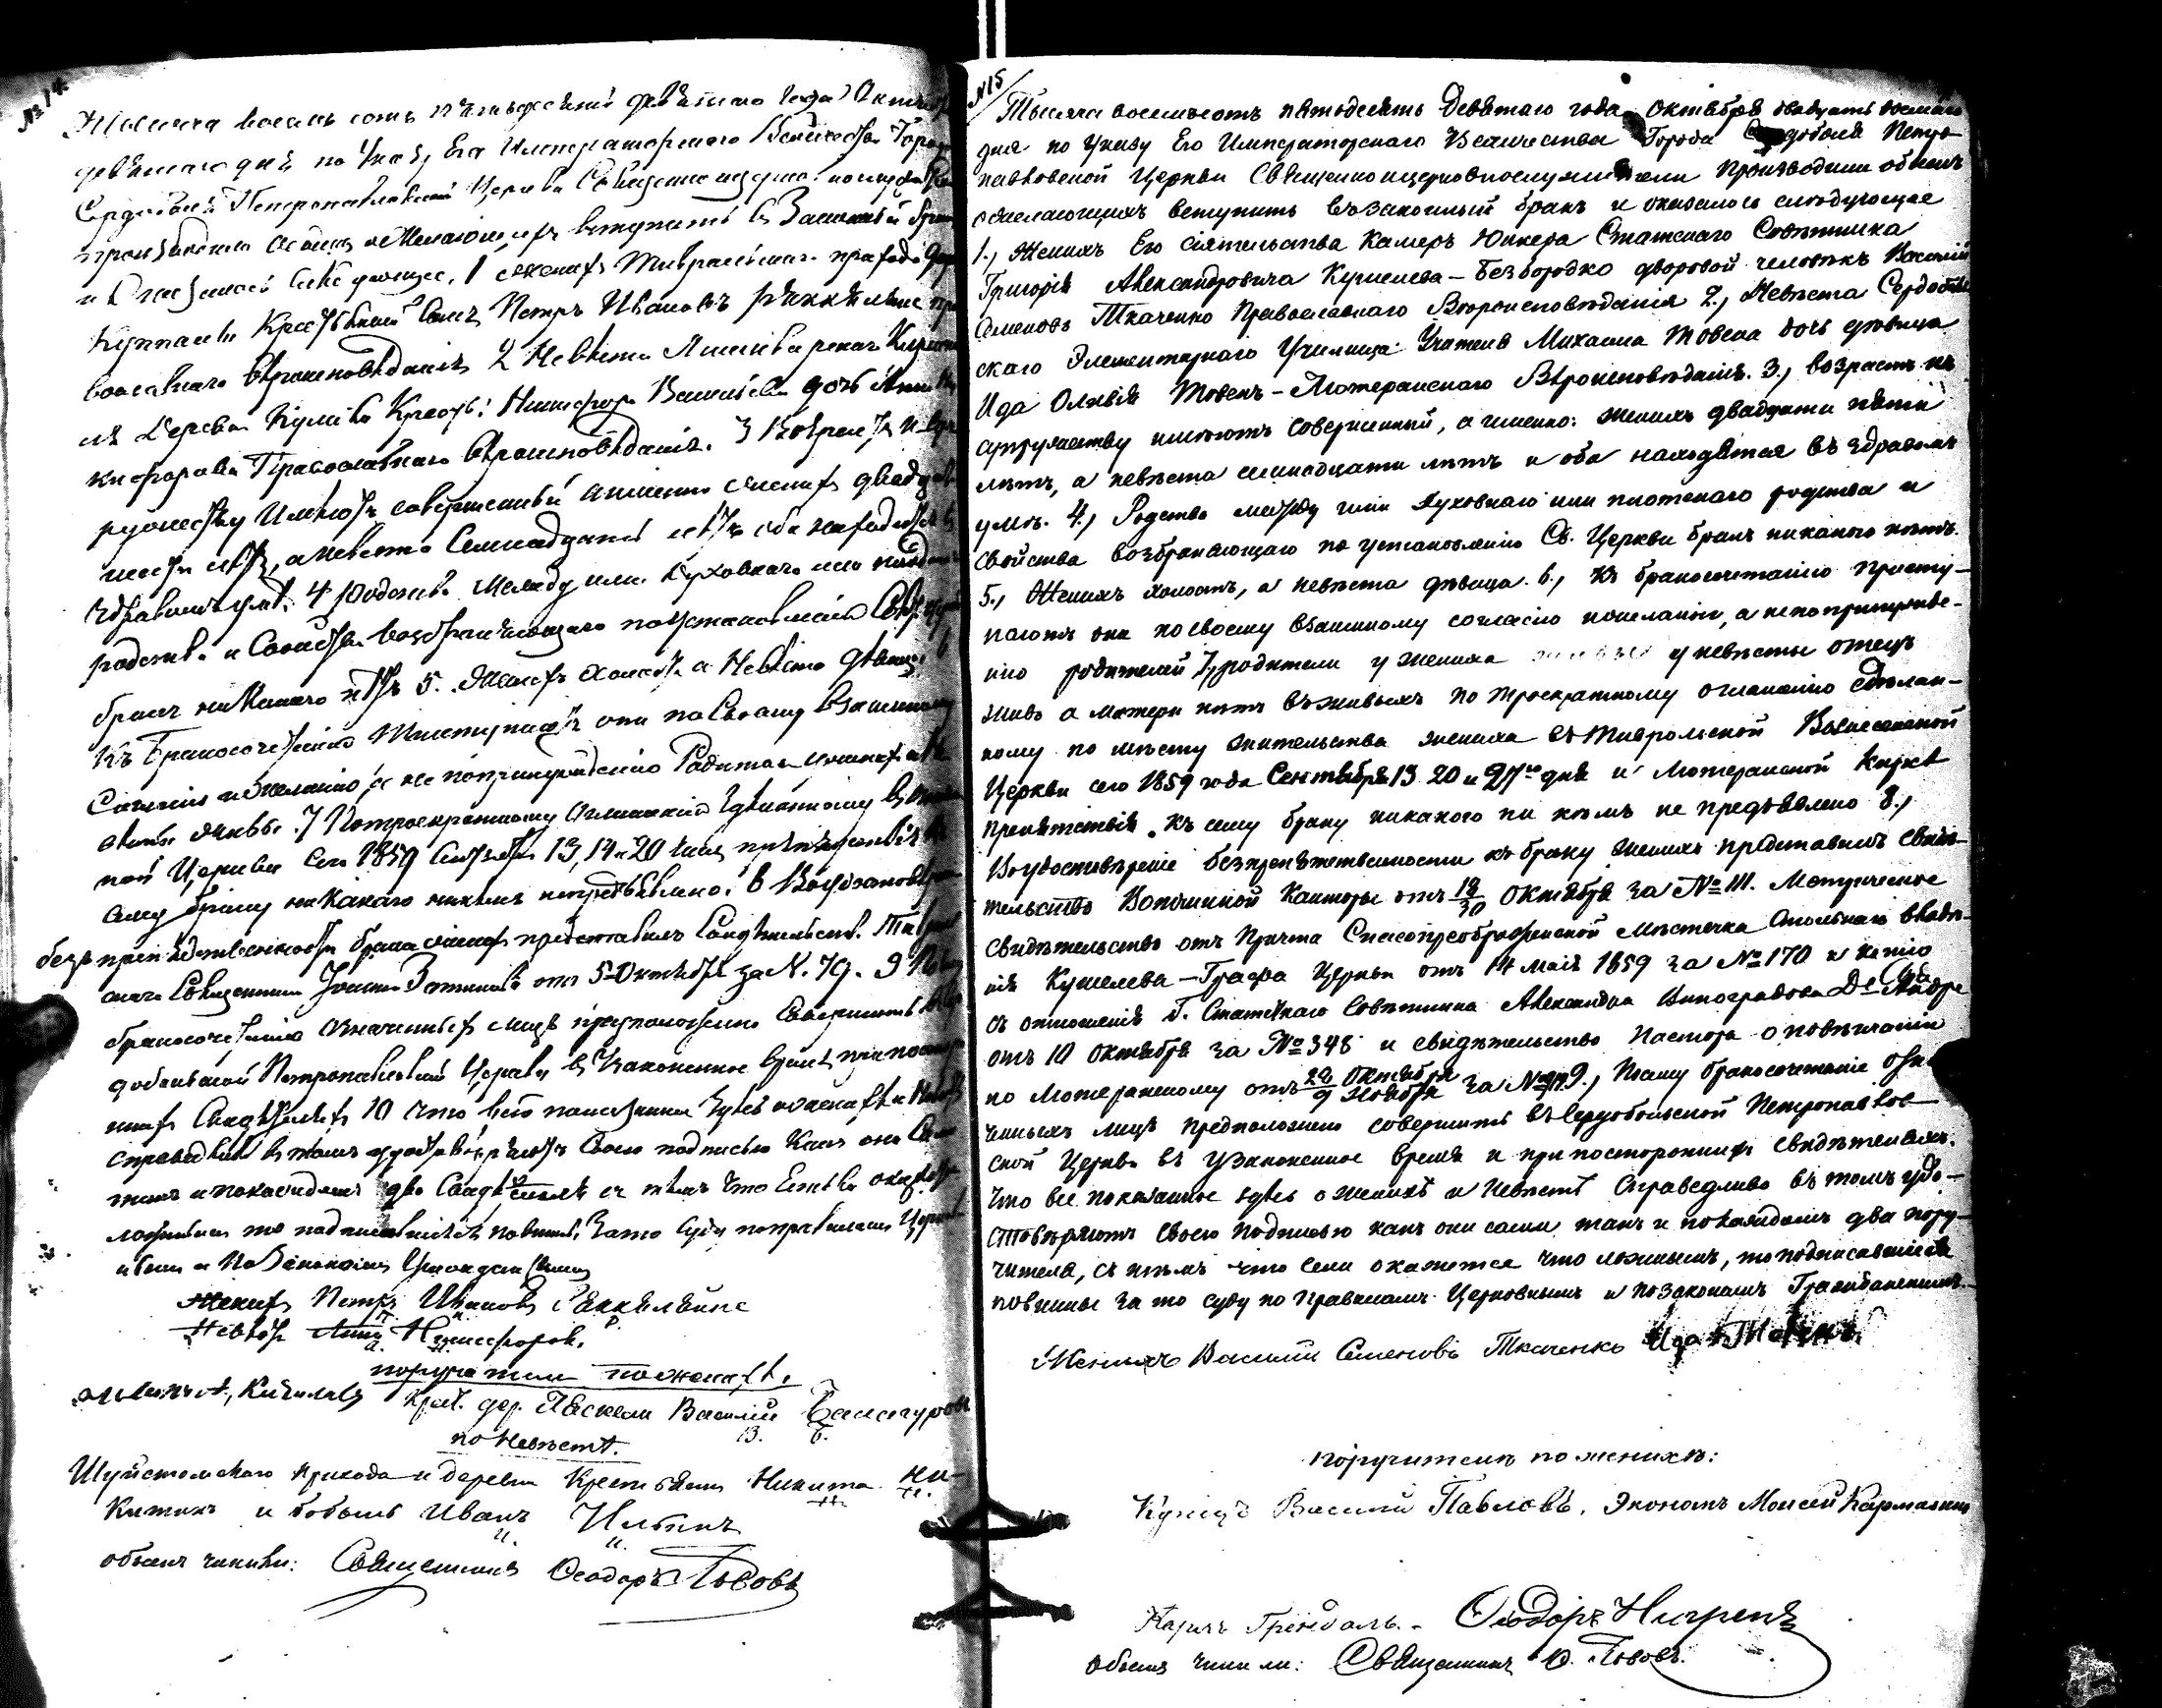 № 14.
Тысяча восемь сотъ пятьдесятъ девятаго года Октября
девятаго дня по Указу Его Императорскаго Величества Города
Сердоболя Петропавловской Церкви Священно
производили обыскъ о желающихъ вступить въ Законный бракъ
и оказалось следующее, 1 женихъ
Крестьянскій сынъ Петръ Ивановъ Ряккеляйне
вославнаго вѣроисповѣданія 2 Невѣста
Деревни Крестья: Никифора дочь Анна
кифорова Православнаго вѣроисповѣданія. 3 Возрастъ
ружеству имѣютъ совершенный а именно женихъ двадцати
лѣтъ, а невѣста семнадцати лѣтъ оба находятся въ
здравомъ умѣ. 4 родства между ими духовнаго или плот
родства и свойства возбраняющаго по установленію Св. Цер
бракъ никакого нѣтъ 5. Женихъ холостъ а Невѣста дѣвица 6
Къ Бракосочетанію приступаютъ они по своему взаимному
согласію и желанію, а не по принужденію
живы. 7 По троекратному оглашенію здѣланному въ
ной Церкви сего 1859 Сентября 13, 14 и 20 числъ препятствія къ
сему браку никакого никѣмъ не предъявлено. 8 Въ удостовѣрен
безъ препятственности брака женихъ представилъ свидѣтельст.
Священника Іоанна отъ 5 Октября за №. 79. 9
бракосочетаніе означенныхъ лицъ предположено совершить въ Сер
добольской Петропавловской Церкви въ Узаконенное время при постор
нихъ Свидѣтеляхъ 10 что всё показанное здѣсь о женихѣ и Невѣстѣ
справедливо въ томъ удостовѣряютъ своею подписью какъ они сами
такъ и по каждомъ два Свидѣтеля съ тѣмъ что Естьли окажется
ложнымъ то подписавшіеся повинны за то суду по правиламъ Церков
нымъ и по Законамъ Гражданскимъ
Женихъ Петръ Ивановъ Ряккеляйне
Невѣста Анна Никифоров.
поручители по женихѣ.
Крест. дер. Василій Балагуровъ
В. Б.
по Невѣстѣ.
Шуйстамскаго прихода и деревни Крестьянинъ Никита Ни-
китинъ и бобыль Иванъ Ильинъ
обыскъ чинили: Священникъ Ѳеодоръ Поповъ
№ 15
Тысяча восемьсотъ пятьдесятъ Девятаго года Октября двадцать восьмаго
дня по Указу Его Императорскаго Величества Города Сердоболя Петро-
павловской Церкви Священноицерковнослужители производили обыскъ
о желающихъ вступить въ законный бракъ и оказалось слѣдующее
1., Женихъ Его Сіятельства Камеръ Юнкера Статскаго Совѣтника
Григорія Александровича Кушелева-Безбородко дворовой человѣкъ Василій
Семеновъ Ткаченко Православнаго Вѣроисповѣданія 2., Невѣста Сердоболь
скаго Элементарнаго Училища Учителя Михаила Товена дочь дѣвица
Ида Оливія Товенъ-Лютеранскаго Вѣроисповѣданія. 3., возрастъ къ
супружеству имѣютъ совершенный, а именно: женихъ двадцати пяти
лѣтъ, а невѣста семнадцати лѣтъ и оба находятся въ здравомъ
умѣ. 4., Родства между ими духовнаго или плотскаго родства и
свойства возбраняющаго по установленію Св. Церкви бракъ никакого нѣтъ.
5., Женихъ холостъ, а невѣста дѣвица. 6., Къ бракосочетанію присту-
паютъ они по своему взаимному согласію и желанію, а не по принужде-
нію родителей 7, родители у жениха у невѣсты отецъ
живъ а матери нѣтъ въ живыхъ по троекратному оглашенію сдѣлан-
ному по мѣсту жительства жениха въ Тиврольской Вознесенской
Церкви сего 1859 года Сентября 13 20 и 27го дня и Лютеранской Киркѣ
препятствія къ сему браку никакого ни кѣмъ не предъявлено 8.,
Въ удостовѣреніе безпрепятственности къ браку женихъ представилъ свидѣ-
тельство Вотчинной Конторы отъ 18/30 Октября за № 111. Метрическое
свидѣтельство отъ Причта Спасопреображенской мѣстечка Стольнаго владѣ-
нія Кушелева-Графа Церкви отъ 14 мая 1859 за № 170 и копію
съ отношенія д. Статскаго Совѣтника Александра Виноградова
отъ 10 Октября за № 348 и свидѣтельство Пастора о повѣнчаніи
по Лютеранскому отъ 28 Октября/9 Ноября за № 9., Посему бракосочетаніе озна
ченныхъ лицъ предположено совершить въ Сердобольской Петропавлов-
ской Церкви въ узаконенное время и при постороннихъ свидѣтеляхъ.
Что все показанное здѣсь о женихѣ и Невѣстѣ Справедливо въ томъ удо-
стовѣряютъ своею подписью какъ они сами такъ и по каждомъ два пору-
чителя, съ тѣмъ что если окажется что ложнымъ, то подписавшіеся
повинны за то суду по правиламъ Церковнымъ и по законамъ Гражданскимъ.
Женихъ Василій Семеновъ Ткаченко Ида Товенъ.
поручители по женихѣ:
Купецъ Василій Павловъ. Экономъ Моисей Кармалинъ
Карлъ Грёндаль. - Ѳеодоръ Нигренъ
Обыскъ чинили: Священникъ Ѳ. Поповъ.